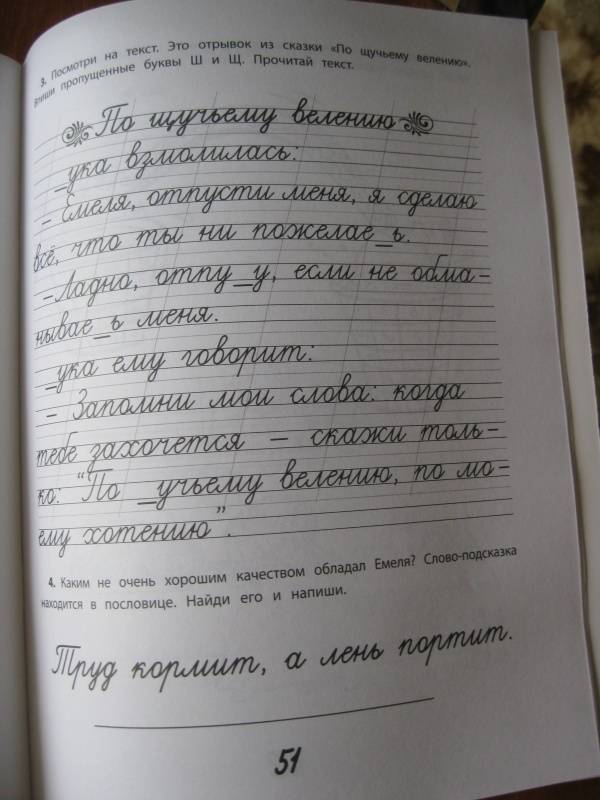 3. Посмотри на текст. Это отрывок из сказки «По щучьему велению».
Впиши пропущенные буквы Ш и Щ. Прочитай текст.
По щучьему велению
_ука взмолилась:
- Емеля, отпусти меня, я сделаю
всё, что ты ни пожелае_ь.
-Ладно, отпу_у, если не обма-
нывае_ь меня.
_ука ему говорит:
- Запомни мои слова: когда
тебе захочется — скажи толь-
ко: "По _учьему велению, по мо-
ему хотению".
4. Каким не очень хорошим качеством обладал Емеля? Слово-подсказка
находится в пословице. Найди его и напиши.
Труд кормит, а лень портит.
51